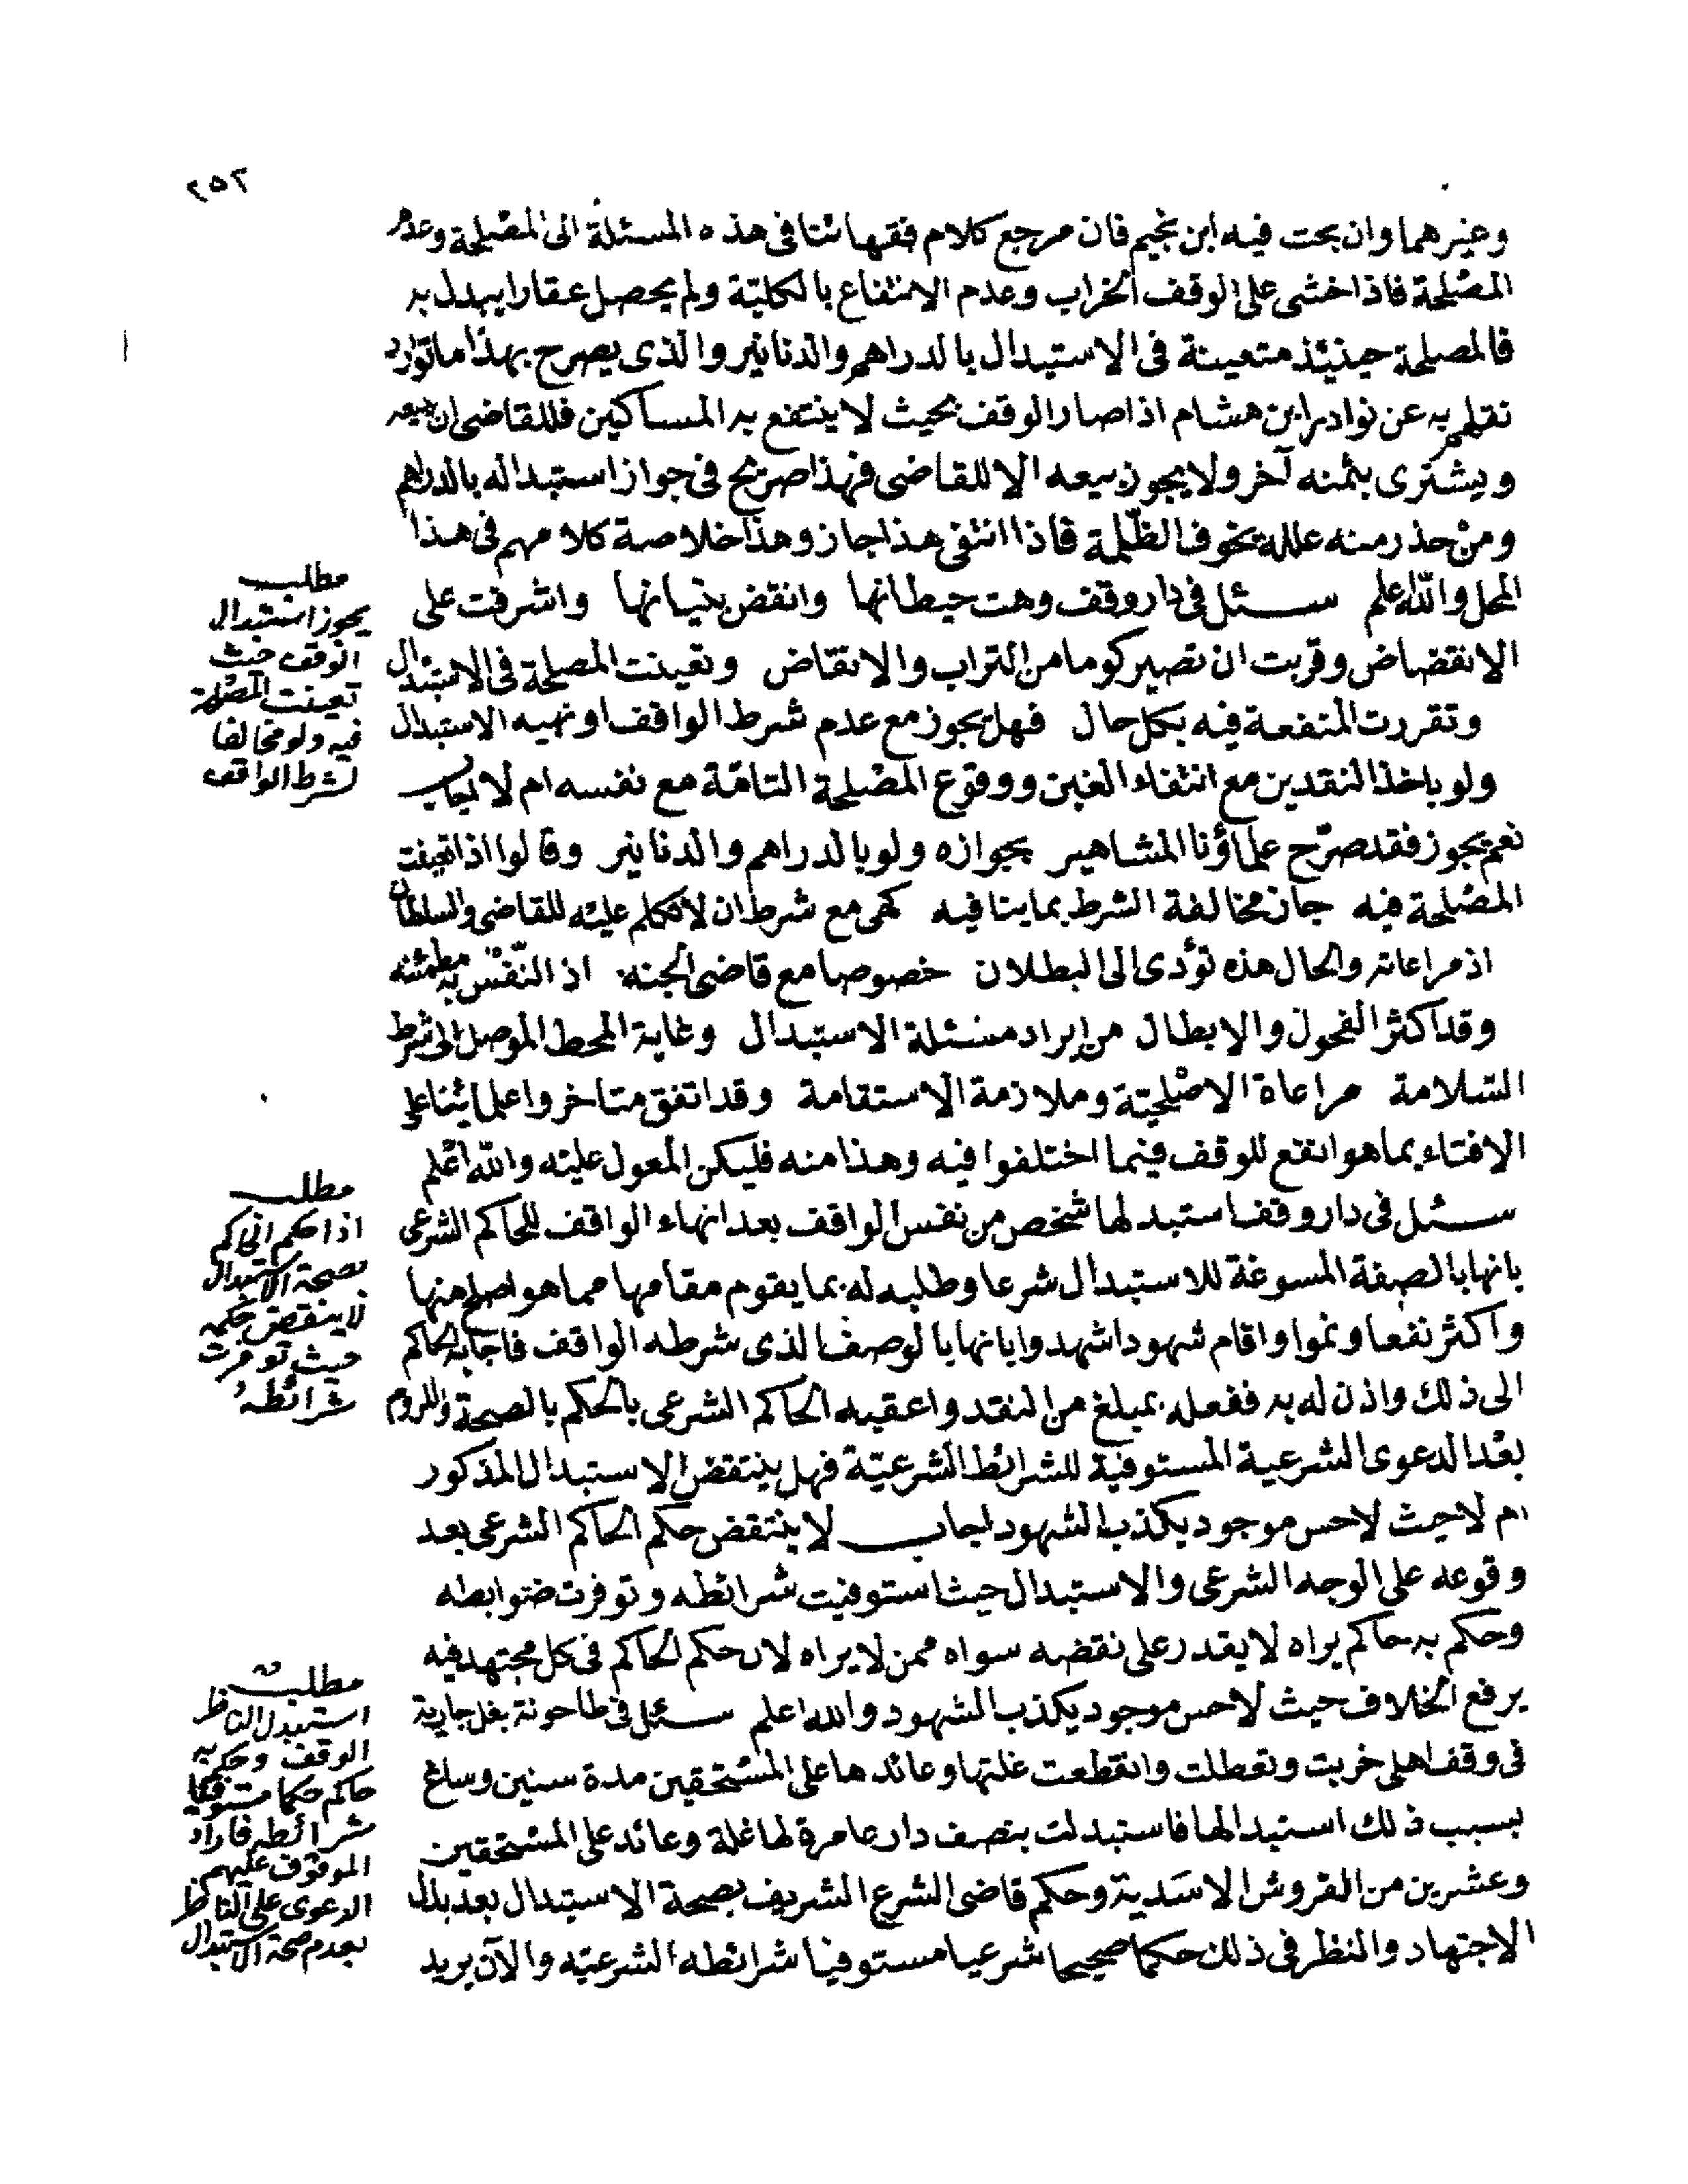 ٢٥٢
وغيرهما وان بحث فيه ابن نجيم فان مرجع كلام فقهائنا فى هذه المسئلة الى المصلحة وعدم
المصلحة فاذا خشى على الوقف الخراب وعدم الانتفاع بالكلية ولم يحصل عقارا يبدل به
فالمصلحة حينئذ متعينة فى الاستبدال بالدراهم والدنانير والذى يصرح بهذا ما توارد
نقلهم به عن نوادر ابن هشام اذا صار الوقف بحيث لا ينتفع به المساكين فللقاضى ان يبيعه
ويشترى بثمنه آخر ولا يجوز بيعه الا للقاضى فهذا صريح فى جواز استبداله بالدراهم
ومن حذر منه علله بخوف الظلمة فاذا انتفى هذا جاز وهذا خلاصة كلامهم فى هذا
المحل والله اعلم سئل فى دار وقف وهت حيطانها وانقض بنيانها واشرفت على
الانقضاض وقربت ان تصير كوما من التراب والانقاض وتعينت المصلحة فى الاستبدال
وتقررت المنفعة فيه بكل حال فهل يجوز مع عدم شرط الواقف او نهيه الاستبدال
ولو باخذ النقدين مع انتفاء الغبن ووقوع المصلحة التامة مع نفسه ام لا اجاب
نعم يجوز فقد صرح علماؤنا المشاهير بجوازه ولو بالدراهم والدنانير وقالوا اذا تعينت
المصلحة فيه جاز مخالفة الشرط بما ينافيه كهى مع شرط ان لا تكلم عليه للقاضى والسلطان
اذ مراعاته والحال هذه تؤدى الى البطلان خصوصا مع قاضى الجنة اذ النفس به مطمئنه
وقد اكثر الفحول والابطال من ايراد مسئلة الاستبدال وغاية المحط الموصل الى شرط
السلامة مراعاة الاصلحية وملازمة الاستقامة وقد اتفق متاخروا علمائنا على
الافتاء بما هو انفع للوقف فيما اختلفوا فيه وهذا منه فليكن المعول عليه والله اعلم
سئل فى دار وقف استبدلها شخص من نفس الواقف بعد انهاء الواقف للحاكم الشرعى
بانها بالصفة المسوغة للاستبدال شرعا وطلبه له بما يقوم مقامها مما هو اصلح منها
واكثر نفعا ونموا واقام شهودا شهدوا بانها بالوصف الذى شرطه الواقف فاجابه الحاكم
الى ذلك واذن له به ففعله بمبلغ من النقد واعقبه الحاكم الشرعى بالحكم بالصحة واللزوم
بعد الدعوى الشرعية المستوفية للشرائط الشرعية فهل ينتقض الاستبدال المذكور
ام لا حيث لا حس موجود يكذب الشهود اجاب لا ينتقض حكم الحاكم الشرعى بعد
وقوعه على الوجه الشرعى والاستبدال حيث استوفيت شرائطه وتوفرت ضوابطه
وحكم به حاكم يراه لا يقدر على نقضه سواه ممن لا يراه لان حكم الحاكم فى كل مجتهد فيه
يرفع الخلاف حيث لا حس موجود يكذب الشهود والله اعلم سئل فى طاحونة بغل جارية
فى وقف اهلى خربت وتعطلت وانقطعت غلتها وعائدها على المستحقين مدة سنين وساغ
بسبب ذلك استبدالها فاستبدلت بنصف دار عامرة لها غلة وعائد على المستحقين
وعشرين من القروش الاسدية وحكم قاضى الشرع الشريف بصحة الاستبدال بعد بذل
الاجتهاد والنظر فى ذلك حكما صحيحا شرعيا مستوفيا شرائطه الشرعيه والآن يريد
مطلب
يجوز استبدال
الوقف حيث
تعينت المصلحة
فيه ولو مخالفا
لشرط الواقف
مطلب
اذا حكم الحاكم
بصحة الاستبدال
لا ينقض حكمه
حيث توفرت
شرائطه
مطلب
استبدل الناظر
الوقف وحكم به
حاكم حكما مستوفيا
شرائطه فاراد
الموقوف عليهم
الدعوى على الناظر
بعدم صحة الاستبدال